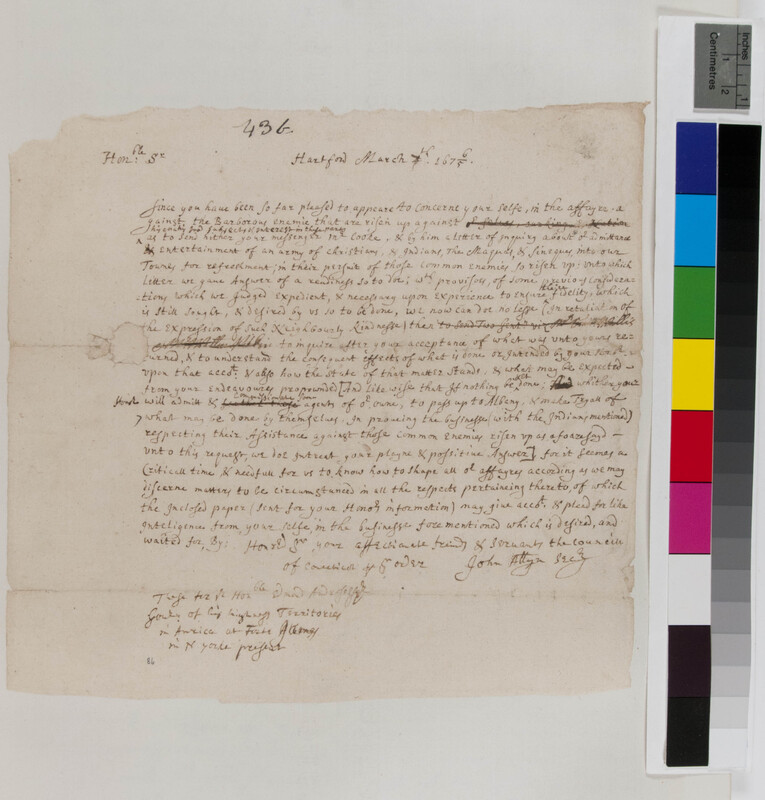 436.
Hon:ble Sr Hartford March th: 167 6/5.
Since you have been so far pleased to appeare to concerne your selfe, in the affayre a
gainst the Barborous enemie that are risen up against
his interest in these parts
as to send hither your messenger mr Cooke, & by him a letter of inquiry about or admittance
& entertainment of an army of christians, & Indians, the Maquas, & Sineques into our
Townes for refreshment; in their persuit of those common enemies so risen up: unto which
letter we gave Answer of a readiness so to doe; wth provisors, of some previous considera-
tions which we Judged expedient, & necessary upon experience to ensure their fidelity, which
is still sought, & desired by us so to be done, we now can doe no lesse (In retaliation of
the expression of such Neighbourly kindness) then to send Two
to inquire after your acceptance of what was unto yours re-
turned, & to understand the consequent effects of what is done or intended by your Honor
upon that acct: & also how the state of that matter stands, & what may be expected
from your endeavoures propownded [And likewise that if nothing be yet done; whither your
Honor will admitt & Commissioners from agents of or owne, to pass up to Albany, & make Tryall of
what may be done by themselves, In proveing the business (with the Indians mentioned)
respecting their Assistance against those Common Enemies risen up as aforesayd
unto this request, we doe intreat your playne & possitive Answer] for it seemes a
Criticall time & needfull for us to know how to shape all or affayres according as we may
discerne matters to be circumstanced in all the respects pertaineing thereto, of which
the inclosed paper (sent for your Honors information) may give acct: & plead for like
inteligence from your selfe, in the business forementioned which is desired, and
waited for, By: Honrd Sr your affectionate freinds & servants the councill
of Conecticut pr order John Allyn Secry
These for ye Honble Edmund Andross Esqr
Govr of his highness Territories
in America at Forte Albany
in N yorke present